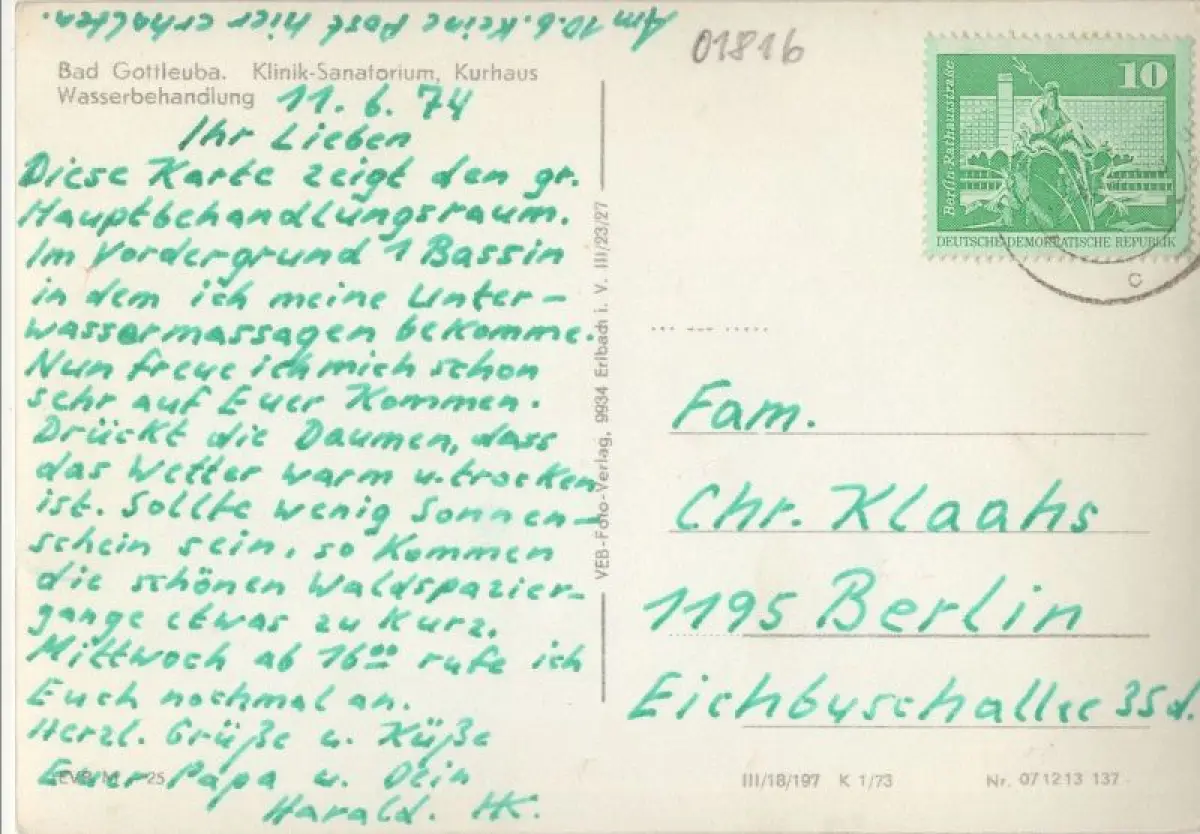 Am 10.6. keine Post hier erhalten.
Bad Gottleuba. Klinik-Sanatorium, Kurhaus
Wasserbehandlung
11. 6. 74
Ihr Lieben
Diese Karte zeigt den gr.
Hauptbehandlungsraum.
Im Vordergrund 1 Bassin
in dem ich meine Unter-
wassermassagen bekomme.
Nun freue ich mich schon
sehr auf Euer Kommen.
Drückt die Daumen, dass
das Wetter warm u. trocken
ist. Sollte wenig Sonnen-
schein sein, so kommen
die schönen Waldspazier-
gange etwas zu kurz.
Mittwoch ab 16oo rufe ich
Euch nochmal an.
Herzl. Grüße u. Küße
Euer Papa u. Dein
Harald. HK.
EVP M -,25
VEB-Foto-Verlag, 9934 Erlbach i. V. III/23/27
01816
Berlin-Rathausstraße
10
DEUTSCHE DEMOKRATISCHE REPUBLIK
c
Fam.
Chr. Klaahs
1195 Berlin
Eichbuschallee 35d.
III/18/197 K 1/73
Nr. 07 12 13 137